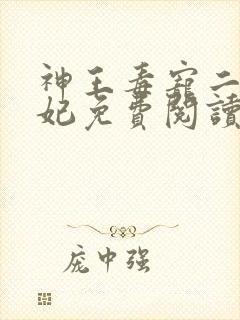 神王毒寵二
妃免費閱讀
庞中强